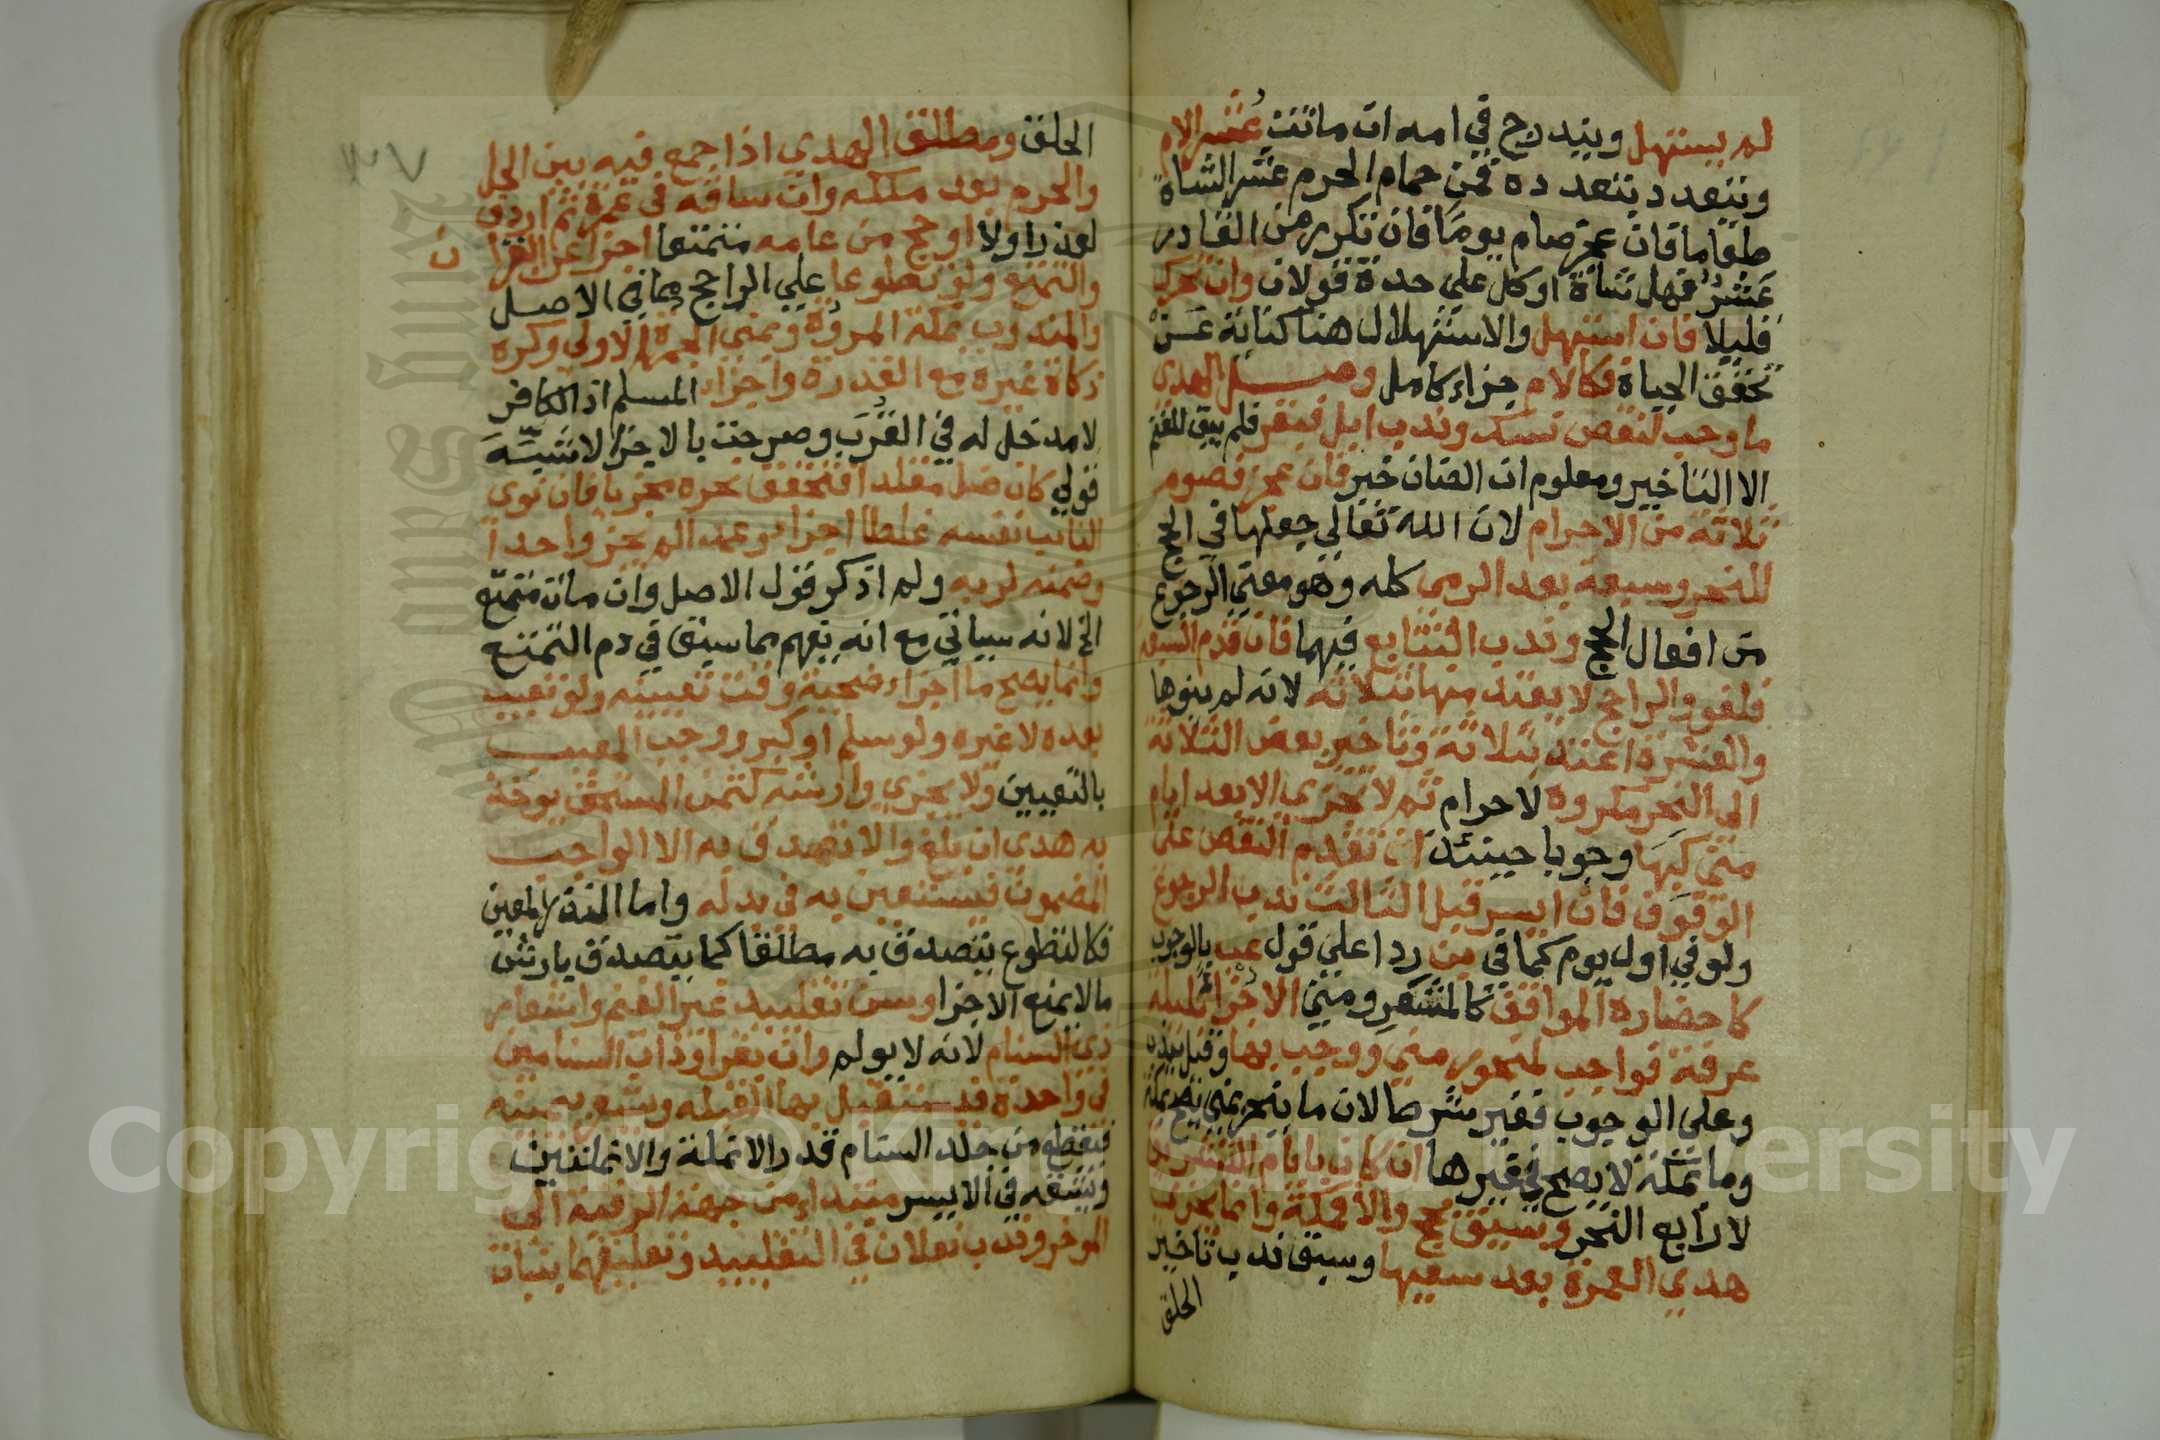 لم يستهل ويندرج في امه ان ماتت عشر الام
ويتعدد بتعدده فمن حمام الحرم عشر الشاة
طعاما فان عجز صام يوما فان تكرر من القادر
عشر فهل شاة او كل على حدة قولان وان تحرك
قليلا فان استهل والاستهلال هنا كناية عن
تحقق الحياة فكالام جزاء كامل وصل الهدي
ما وجب لنقص نسك وندب ابل فبقر فلم يبق للغنم
الا التاخير ومعلوم ان الضان خير فان عجز فصوم
ثلاثة من الاحرام لان الله تعالى جعلها في الحج
للنحر وسبعة بعد الرمي كله وهو معنى الرجوع
من افعال الحج وندب التتابع فيهما فان قدم السبعة
فلغو والراجح لا يعتد منها بثلاثة لانه لم ينوها
والعشرة اعتد بثلاثة وتاخير بعض الثلاثة
الى النحر مكروه لا حرام ثم لا تجزي الا بعد ايام
منى كبها وجوبا حينئذ ان تقدم النقص على
الوقوف فان ايسر قبل الثالث ندب الرجوع
ولو في اول يوم كما في بن ردا على قول عب بالوجوب
كاحضاره المواقف كالمشعر ومنى الاجزا ليلة
عرفة فواجب لمنحور منى ووجب بها وقيل ندب
وعلى الوجوب فغير شرط لان ما ينحر بمنى يصح بمكة
وما بمكة لا يصح في غيرها ان كان بايام التشريق
لا رابع النحر وسيق بحج والا فمكة وانما يجزي
هدي العمرة بعد سعيها وسبق ندب تاخير
الحلق
الحلق ومطلق الهدي اذا جمع فيه بين الحل
والحرم بعد ملكه وان ساقه في عمرة ثم اردف
لعذر اولا او حج من عامه متمتعا اجزا عن القران
والتمتع ولو تطوعا على الراجح مما في الاصل
والمندوب بمكة المروة وبمنى الجمرة الاولى وكره
ذكاة غيره مع القدرة واجزا المسلم اذ الكافر
لا مدخل له في القرب وصرحت بالاجزا لانثيته
قولي كان ضل مقلدا فتحقق نحره مجزيا فان نوى
النائب نفسه غلطا اجزا وعمدا لم يجز واحدا
وضمنه لربه ولم اذكر قول الاصل وان مات متمتع
الخ لانه سياتي مع انه يفهم مما سبق في دم التمتع
وانما يصح ما اجزاء ضحية وقت تعيينه ولو تعيب
بعده لا غيره ولو سلم او كبر ووجب المعيب
بالتعيين ولا يجزي وارشه كثمن المستحق يوخذ
به هدي ان بلغ والا تصدق به الا الواجب
المضمون فيستعين به في بدله واما النذر المعين
فكالتطوع يتصدق به مطلقا كما يتصدق بارش
ما لا يمنع الاجزا وسن تقليد غير الغنم واشعار
ذي السنام لانه لا يولم وان بقرا وذات السنامين
في واحدة فيستقبل بها القبلة ويشعر بيمينه
فيقطع من جلد السنام قدر الانملة والانملتين
ويشقه في الايسر مبتداء من جهة الرقبة الى
الموخر وندب نعلان في التقليد وتعليقهما بنبات